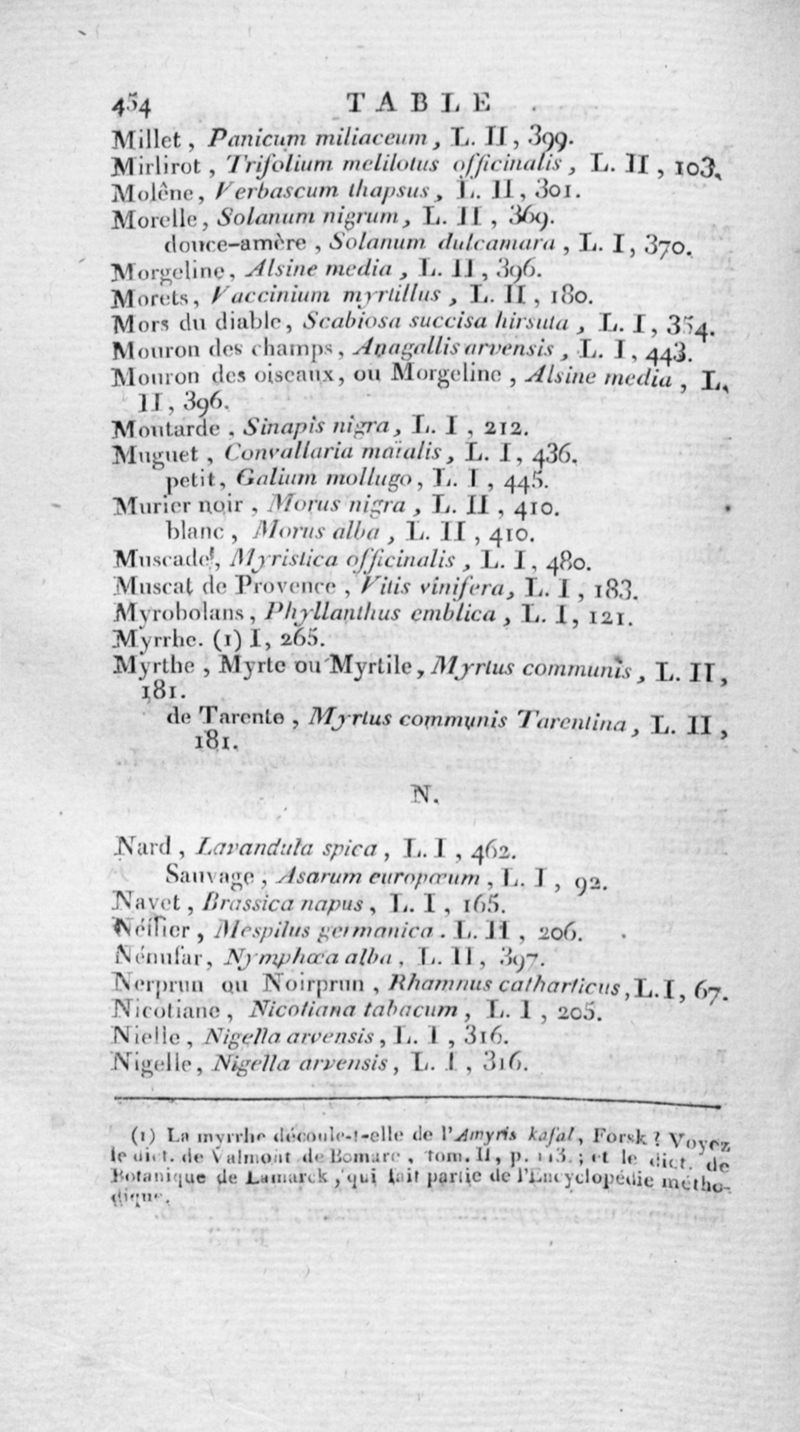 454 TABLE
Millet, Panicum miliaceum, L. II, 399.
Mirlirot, Trifolium melilotus officinalis, L. II, 103.
Molêne, Verbascum thapsus, L. II, 301.
Morelle, Solanum nigrum, L. II, 369.
douce-amère, Solanum dulcamara, L. I, 370.
Morgeline, Alsine media, L. II, 396.
Morets, Vaccinium myrtillus, L. II, 180.
Mors du diable, Scabiosa succisa hirsuta, L. I, 354.
Mouron des champs, Anagallis arvensis, L. I, 443.
Mouron des oiseaux, ou Morgeline, Alsine media, L.
II, 396.
Moutarde, Sinapis nigra, L. I, 212.
Muguet, Convallaria maïalis, L. I, 436.
petit, Galium mollugo, L. I, 445.
Murier noir, Morus nigra, L. II, 410.
blanc, Morus alba, L. II, 410.
Muscade, Myristica officinalis, L. I, 480.
Muscat de Provence, Vitis vinifera, L. I, 183.
Myrobolans, Phyllanthus emblica, L. I, 121.
Myrrhe. (1) I, 265.
Myrthe, Myrte ou Myrtile, Myrtus communis, L. II,
181.
de Tarente, Myrtus communis Tarentina, L. II,
181.
N.
Nard, Lavandula spica, L. I, 462.
Sauvage, Asarum europœum, L. I, 92.
Navet, Brassica napus, L. I, 165.
Néflier, Mespilus germanica. L. II, 206.
Nénufar, Nymphœa alba, L. II, 397.
Nerprun ou Noirprun, Rhamnus catharticus, L. I, 67.
Nicotiane, Nicotiana tabacum, L. I, 205.
Nielle, Nigella arvensis, L. I, 316.
Nigelle, Nigella arvensis, L. I, 316.
(1) La myrrhe découle-t-elle de l'Amyris kafal, Forsk? Voyez
le dict. de Valmont de Bomare, tom. II, p. 113.; et le dict. de
Botanique de Lamarck, qui fait partie de l'Encyclopédie métho-
dique.